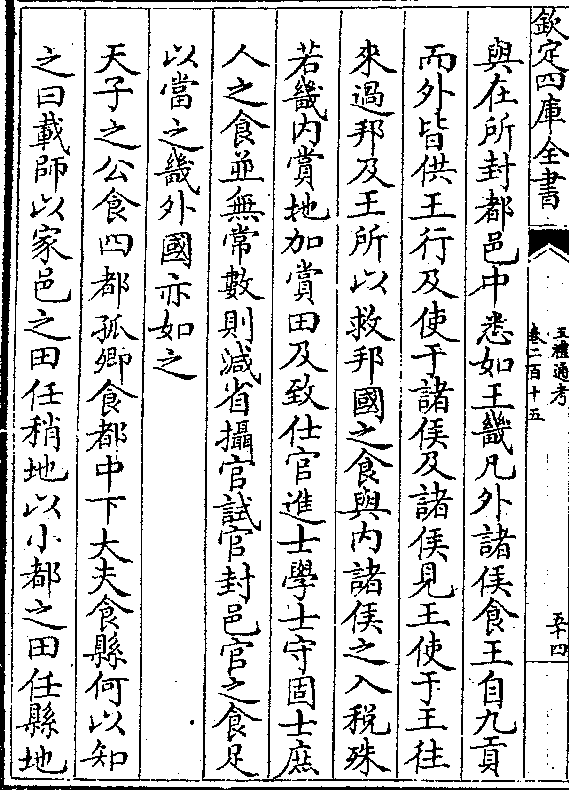 欽定四庫全書
五禮通考
卷二百十五
五十四
與在所封都邑中悉如王畿凡外諸侯食王自九貢
而外皆供王行及使于諸侯及諸侯見王使于王往
來過邦及王所以救邦國之食與内諸侯之入税殊
若畿内賞地加賞田及致仕官進士學士守固士庶
人之食並無常數則減省攝官試官封邑官之食足
以當之畿外國亦如之
天子之公食四都孤卿食都中下大夫食縣何以知
之曰載師以家邑之田任稍地以小都之田任縣地